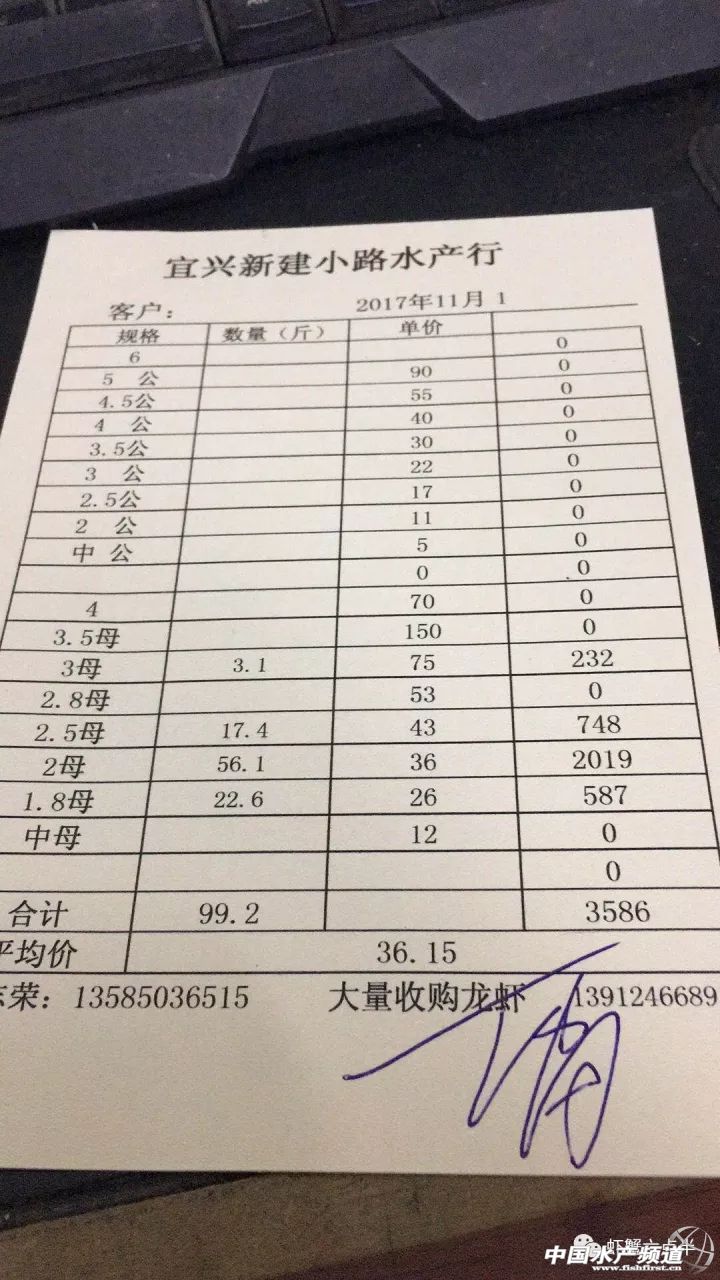 宜兴新建小路水产行
客户： 2017年11月 1
规格 数量（斤） 单价
6 0
5 公 90 0
4.5公 55 0
4 公 40 0
3.5公 30 0
3 公 22 0
2.5公 17 0
2 公 11 0
中 公 5 0
0 0
4 70 0
3.5母 150 0
3母 3.1 75 232
2.8母 53 0
2.5母 17.4 43 748
2母 56.1 36 2019
1.8母 22.6 26 587
中母 12 0
0
合计 99.2 3586
平均价 36.15
荣：13585036515 大量收购龙虾 1391246689
虾蟹六点半
中国水产频道
www.fishfirst.cn